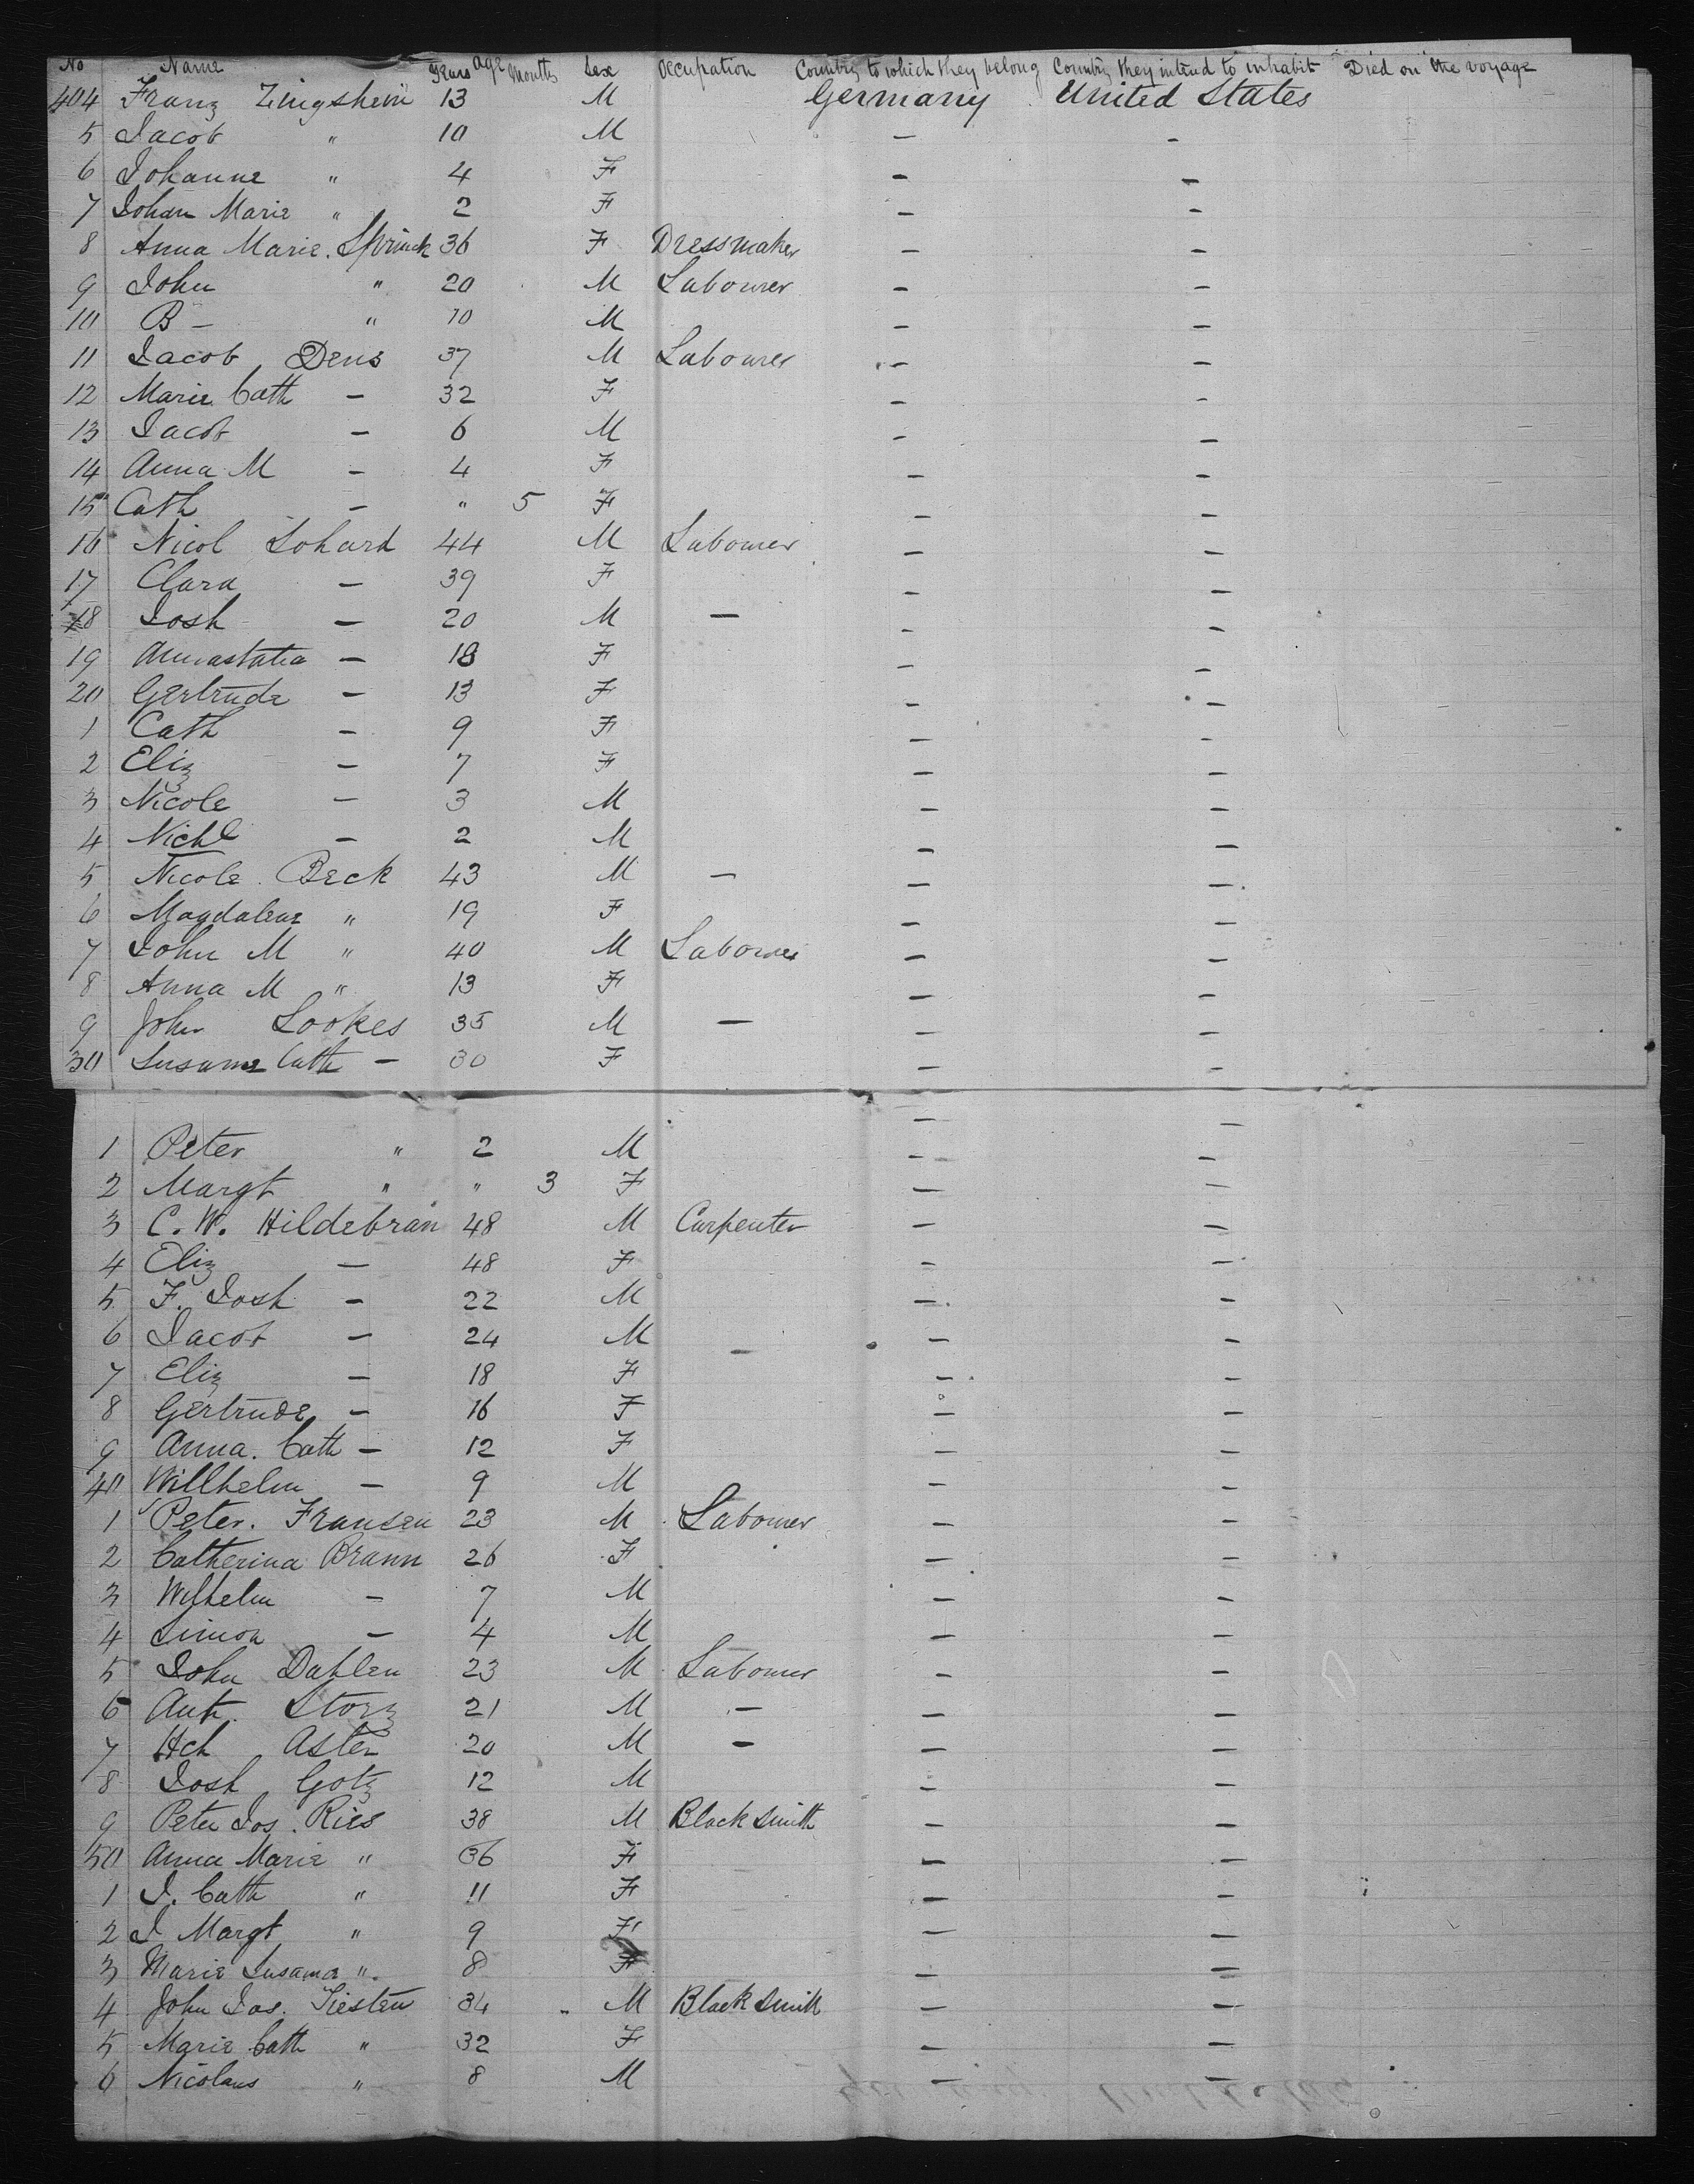 No Name Years Age Months Sex Occupation Country to which they belong Country they intend to inhabit Died on the voyage
404 Franz Zingsheim 13 M Germany United States
5 Jacob " 10 M — —
6 Johanne " 4 F — —
7 Johan Marie " 2 F — —
8 Anna Marie. Sprinck 36 F Dressmaker — —
9 John " 20 M Labourer — —
10 B — " 10 M — —
11 Jacob Dens 37 M Labourer — —
12 Marie Cath — 32 F — —
13 Jacob — 6 M — —
14 Anna M — 4 F — —
15 Cath — " 5 F — —
16 Nicol Lohard 44 M Labourer — —
17 Clara — 39 F — —
18 Josh — 20 M — — —
19 Annastatia — 18 F — —
20 Gertrude — 13 F — —
1 Cath — 9 F — —
2 Eliz — 7 F — —
3 Nicole — 3 M — —
4 Nichl — 2 M — —
5 Nicole Beck 43 M — — —
6 Magdalene " 19 F — —
7 John M " 40 M Labourer — —
8 Anna M " 13 F — —
9 John Lookes 35 M — — —
30 Susanne Cath — 30 F — —
1 Peter " 2 M — —
2 Margt " " 3 F — —
3 C. W. Hildebran 48 M Carpenter — —
4 Eliz — 48 F — —
5 F. Josh — 22 M — —
6 Jacob — 24 M — — —
7 Eliz — 18 F — —
8 Gertrude — 16 F — —
9 Anna. Cath — 12 F — —
40 Willhelm — 9 M — —
1 Peter. Fransen 23 M Labourer — —
2 Catherina Brann 26 F — —
3 Wilhelm — 7 M — —
4 Simon — 4 M — —
5 John Dahlen 23 M Labourer — —
6 Ant. Storz 21 M — — —
7 Hch Asten 20 M — — —
8 Josh Gotz 12 M — —
9 Peter Jos. Ries 38 M Blacksmith — —
50 Anna Marie " 36 F — —
1 J. Cath " 11 F — —
2 J Margt " 9 F — —
3 Marie Susanna " 8 F — —
4 John Jos. Tiesten 34 M Blacksmith — —
5 Marie Cath " 32 F — —
6 Nicolaus " 8 M — —